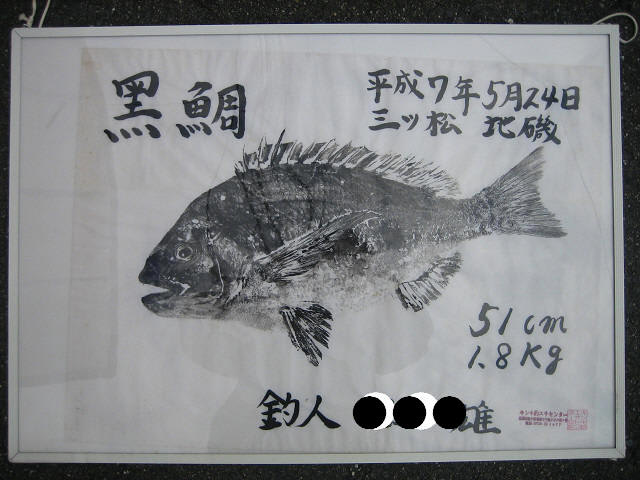 黒鯛
平成7年5月24日
三ッ松 地磯
51cm
1.8Kg
釣人 雄